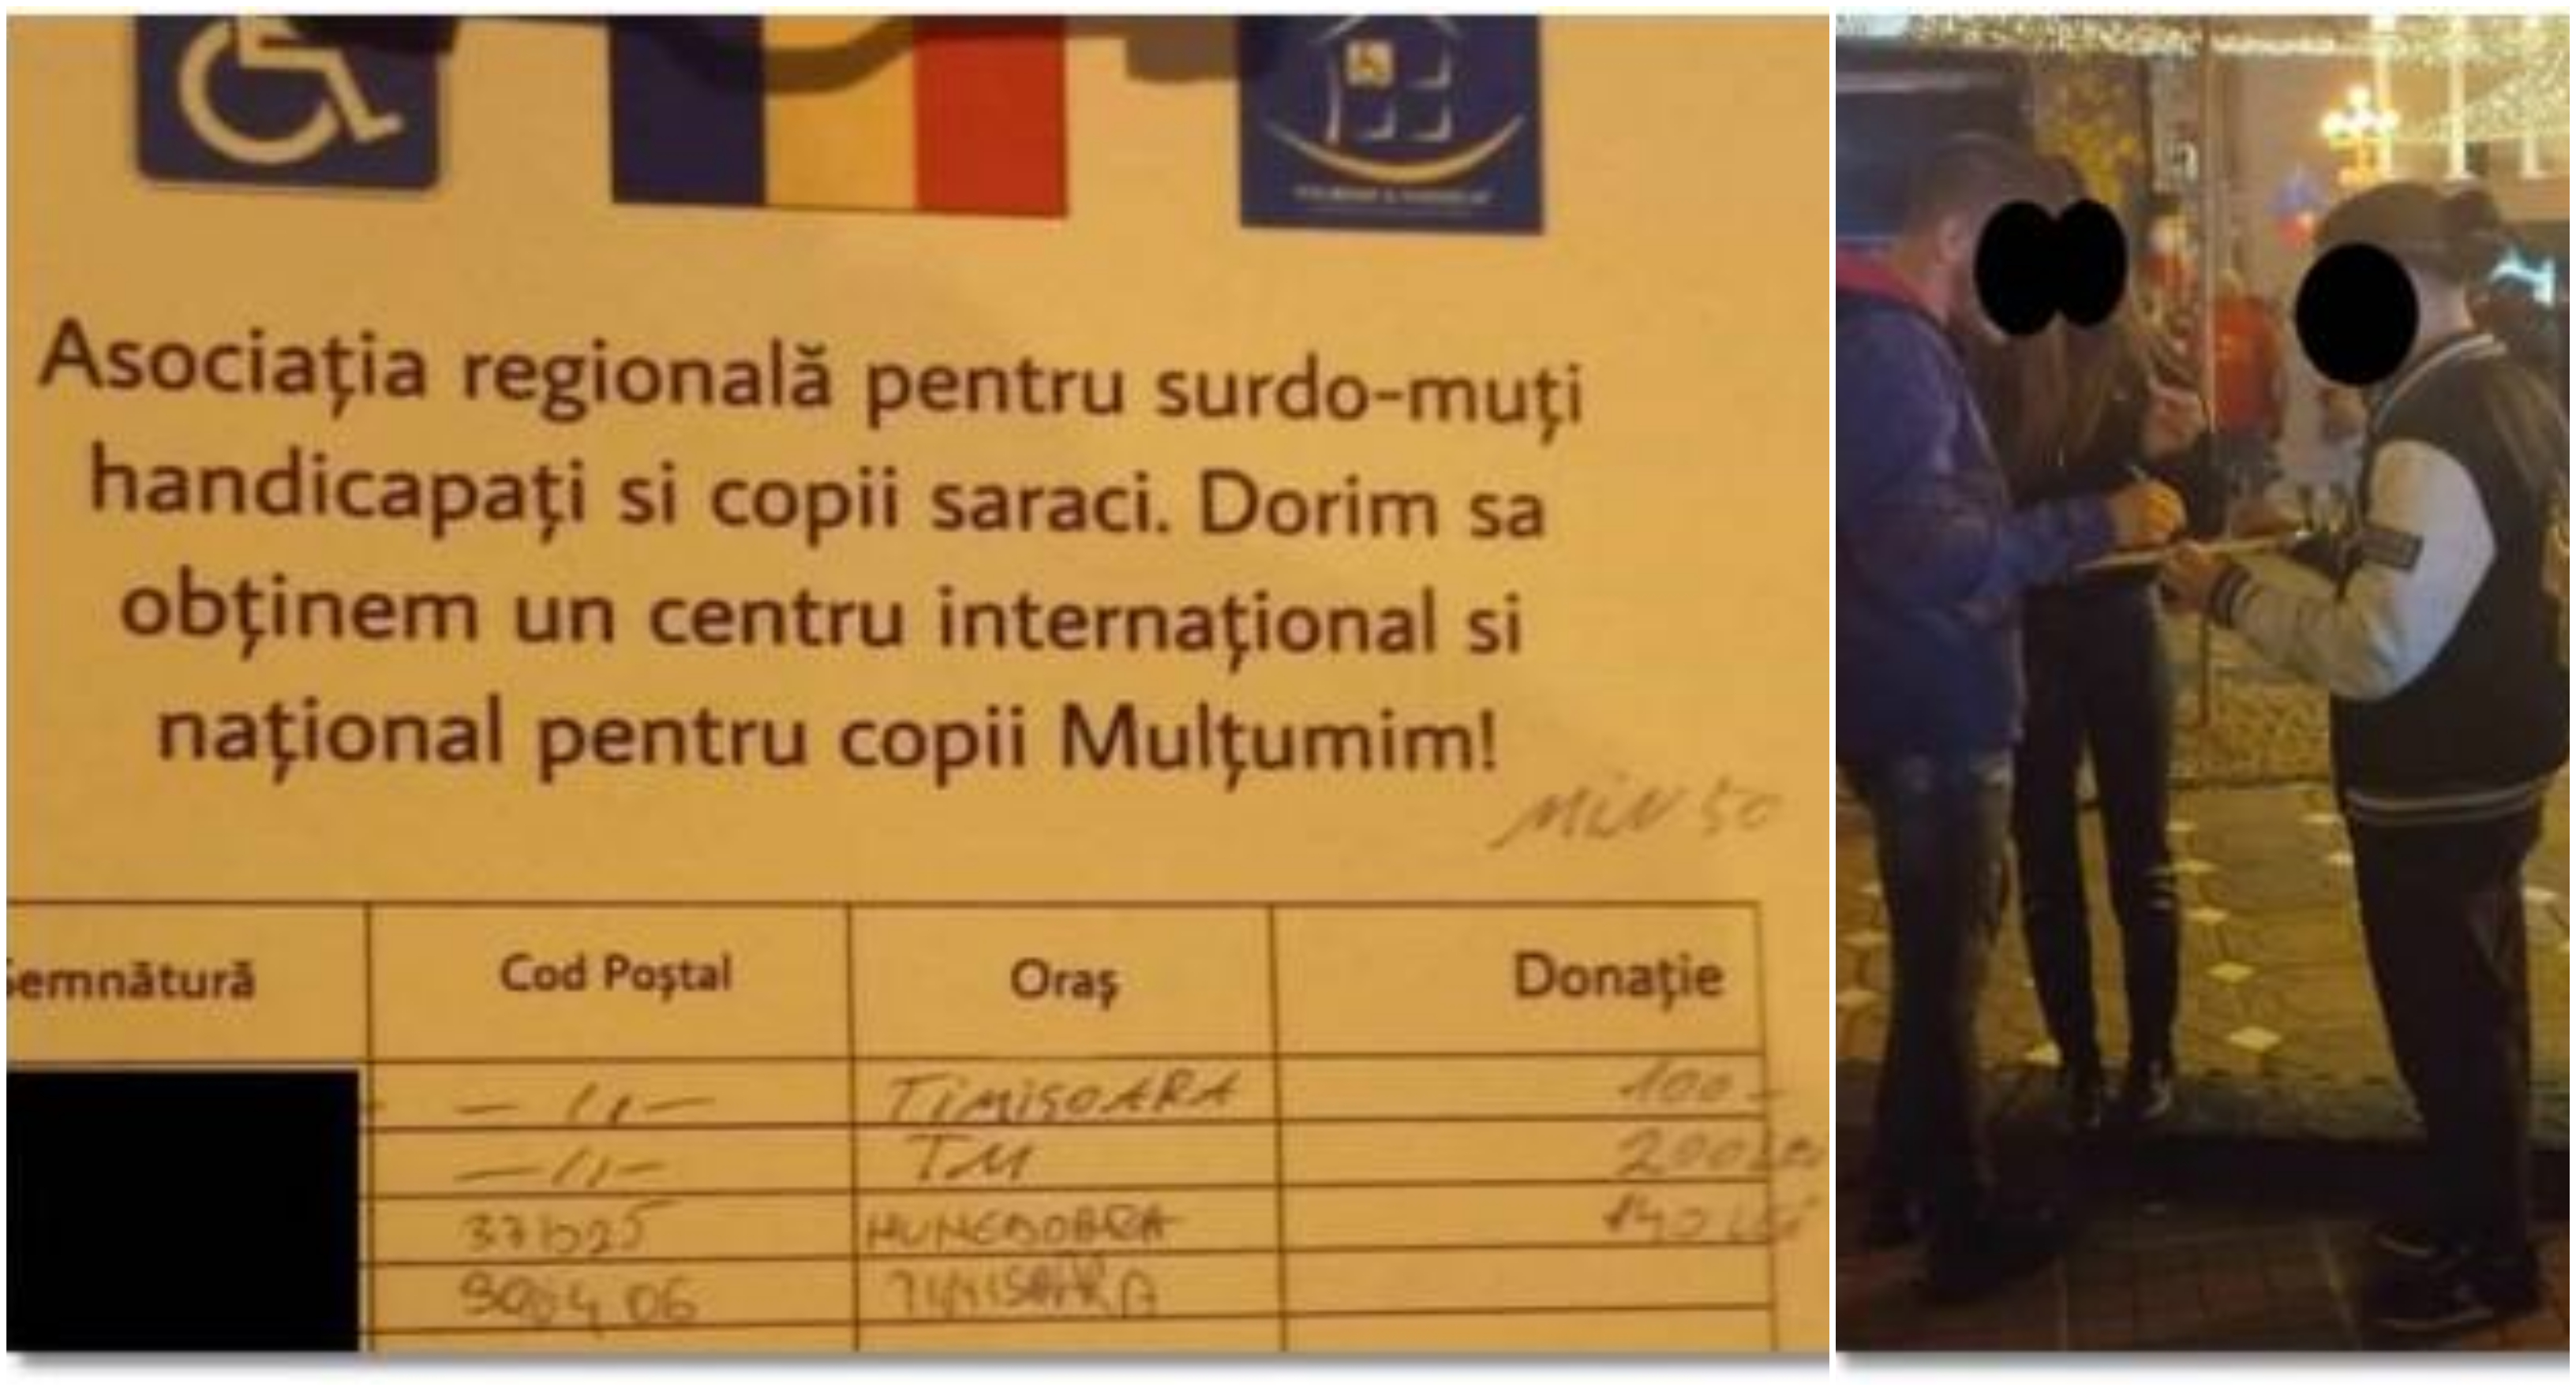 Asociația regională pentru surdo-muți
handicapați si copii saraci. Dorim sa
obținem un centru internațional si
național pentru copii Mulțumim!
MIN 50
Semnătură Cod Poștal Oraș Donație
— 11 — TIMISOARA 100 -
— 11 — TM 200 LEI
HUNEDOARA 140 LEI